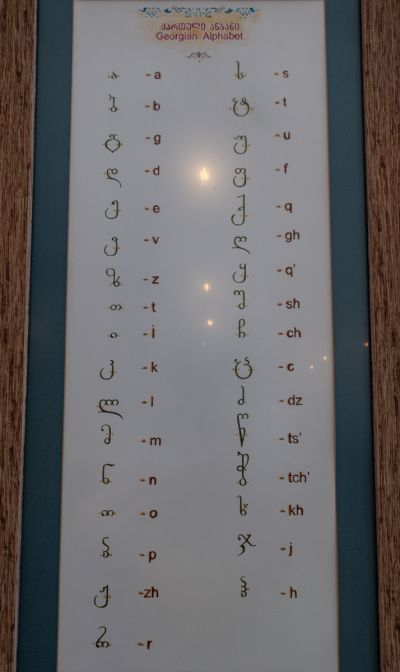 ქართული ანბანი
Georgian Alphabet
ა - a
ბ - b
გ - g
დ - d
ე - e
ვ - v
ზ - z
თ - t
ი - i
კ - k
ლ - l
მ - m
ნ - n
ო - o
პ - p
ჟ -zh
რ - r
ს - s
ტ - t
უ - u
ფ - f
ქ - q
ღ - gh
ყ - q'
შ - sh
ჩ - ch
ც - c
ძ - dz
წ - ts'
ჭ - tch'
ხ - kh
ჯ - j
ჰ - h